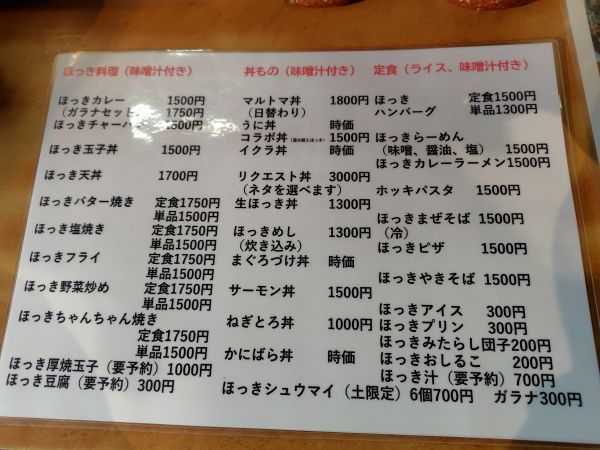 ほっき料理（味噌汁付き）
ほっきカレー 1500円
（ガラナセット） 1750円
ほっきチャーハン 1500円
ほっき玉子丼 1500円
ほっき天丼 1700円
ほっきバター焼き 定食1750円
単品1500円
ほっき塩焼き 定食1750円
単品1500円
ほっきフライ 定食1750円
単品1500円
ほっき野菜炒め 定食1750円
単品1500円
ほっきちゃんちゃん焼き
定食1750円
単品1500円
ほっき厚焼玉子（要予約）1000円
ほっき豆腐（要予約）300円
丼もの（味噌汁付き）
マルトマ丼 1800円
（日替わり）
うに丼 時価
コラボ丼 1500円
イクラ丼 時価
リクエスト丼 3000円
（ネタを選べます）
生ほっき丼 1300円
ほっきめし 1300円
（炊き込み）
まぐろづけ丼 時価
サーモン丼 1500円
ねぎとろ丼 1000円
かにばら丼 時価
ほっきシュウマイ（土限定）6個700円
定食（ライス、味噌汁付き）
ほっき 定食1500円
ハンバーグ 単品1300円
ほっきらーめん
（味噌、醤油、塩） 1500円
ほっきカレーラーメン1500円
ホッキパスタ 1500円
ほっきまぜそば 1500円
（冷）
ほっきピザ 1500円
ほっきやきそば 1500円
ほっきアイス 300円
ほっきプリン 300円
ほっきみたらし団子200円
ほっきおしるこ 200円
ほっき汁（要予約）700円
ガラナ300円